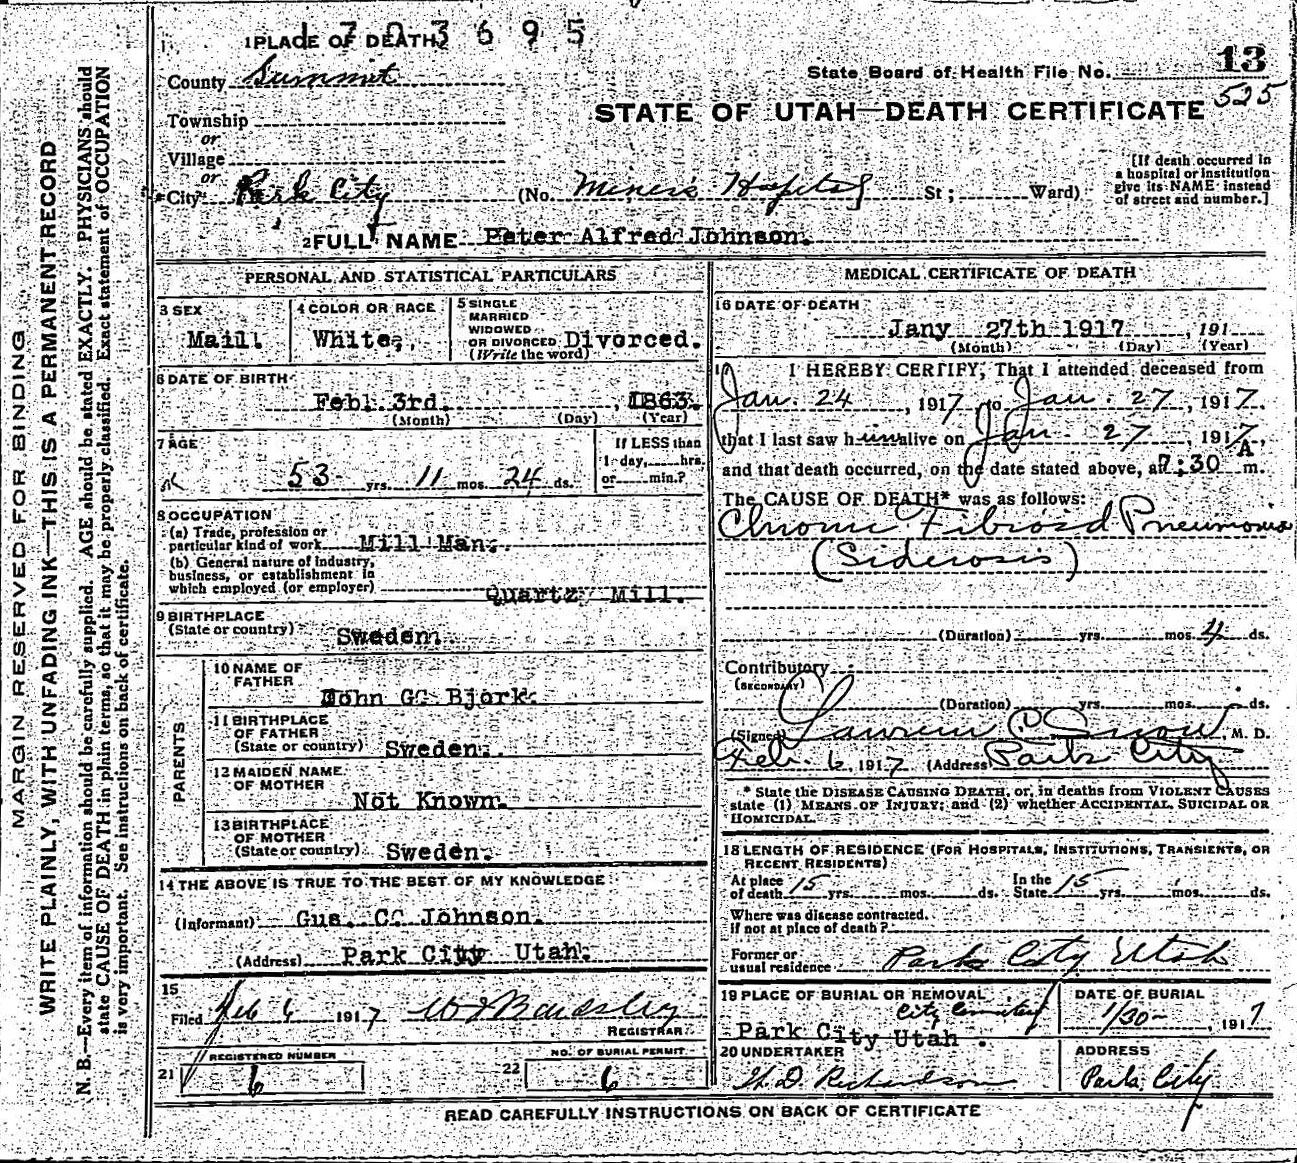 1 PLACE OF DEATH
1703695
County Summit
State Board of Health File No. 13
525
STATE OF UTAH—DEATH CERTIFICATE
Township
or
Village
or
*City* Park City (No. Miners Hospital St; Ward)
[If death occurred in
a hospital or institution
give its NAME instead
of street and number.]
2 FULL NAME Peter Alfred Johnson.
PERSONAL AND STATISTICAL PARTICULARS
3 SEX
Maill.
4 COLOR OR RACE
White,
5 SINGLE
MARRIED
WIDOWED
OR DIVORCED Divorced.
(Write the word)
6 DATE OF BIRTH
Feb. 3rd. , 1863.
(Month) (Day) (Year)
7 AGE
53 yrs. 11 mos. 24 ds.
If LESS than
1 day, hrs.
or min.?
8 OCCUPATION
(a) Trade, profession or
particular kind of work Mill Man.
(b) General nature of industry,
business, or establishment in
which employed (or employer) Quartz Mill.
9 BIRTHPLACE
(State or country) Sweden.
PARENTS
10 NAME OF
FATHER
John G. Bjork.
11 BIRTHPLACE
OF FATHER
(State or country) Sweden.
12 MAIDEN NAME
OF MOTHER
Not Known.
13 BIRTHPLACE
OF MOTHER
(State or country) Sweden.
14 THE ABOVE IS TRUE TO THE BEST OF MY KNOWLEDGE
(Informant) Gus. C. Johnson.
(Address) Park City Utah.
15
Filed Feb 6 1917
REGISTRAR
REGISTERED NUMBER
21 6
NO. OF BURIAL PERMIT
22 6
MEDICAL CERTIFICATE OF DEATH
16 DATE OF DEATH
Jany 27th 1917 , 191
(Month) (Day) (Year)
I HEREBY CERTIFY, That I attended deceased from
Jan. 24 , 1917 to Jan. 27, 1917,
that I last saw him alive on Jan 27 , 1917,
and that death occurred, on the date stated above, at 7:30 A m.
The CAUSE OF DEATH* was as follows:
Chronic Fibroid Pneumonia
(Siderosis)
(Duration) yrs. mos. 4 ds.
Contributory
(SECONDARY)
(Duration) yrs. mos. ds.
(Signed) Snow, M. D.
Feb. 6, 1917 (Address) Park City
* State the DISEASE CAUSING DEATH, or, in deaths from VIOLENT CAUSES
state (1) MEANS OF INJURY; and (2) whether ACCIDENTAL, SUICIDAL OR
HOMICIDAL.
18 LENGTH OF RESIDENCE (FOR HOSPITALS, INSTITUTIONS, TRANSIENTS, OR
RECENT RESIDENTS)
At place
of death 15 yrs. mos. ds.
In the
State 15 yrs. mos. ds.
Where was disease contracted.
if not at place of death?
Former or
usual residence Park City Utah
19 PLACE OF BURIAL OR REMOVAL
City Cemetery
Park City Utah.
DATE OF BURIAL
1/30 , 1917
20 UNDERTAKER
Richardson
ADDRESS
Park City
READ CAREFULLY INSTRUCTIONS ON BACK OF CERTIFICATE
MARGIN RESERVED FOR BINDING
WRITE PLAINLY, WITH UNFADING INK—THIS IS A PERMANENT RECORD
N. B.—Every item of information should be carefully supplied. AGE should be stated EXACTLY. PHYSICIANS should
state CAUSE OF DEATH in plain terms, so that it may be properly classified. Exact statement of OCCUPATION
is very important. See instructions on back of certificate.